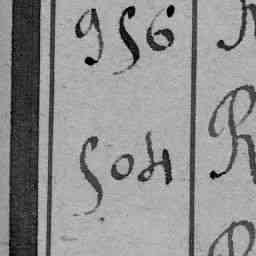 956 R
504 R
R